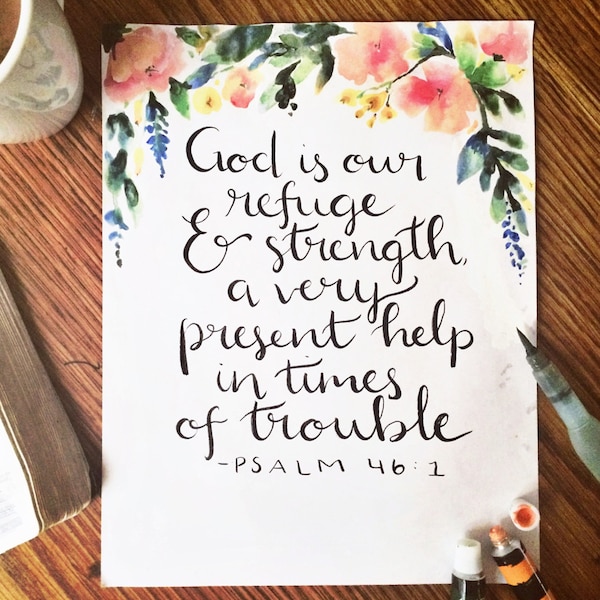 God is our
refuge
& strength,
a very
present help
in times
of trouble
-PSALM 46:1